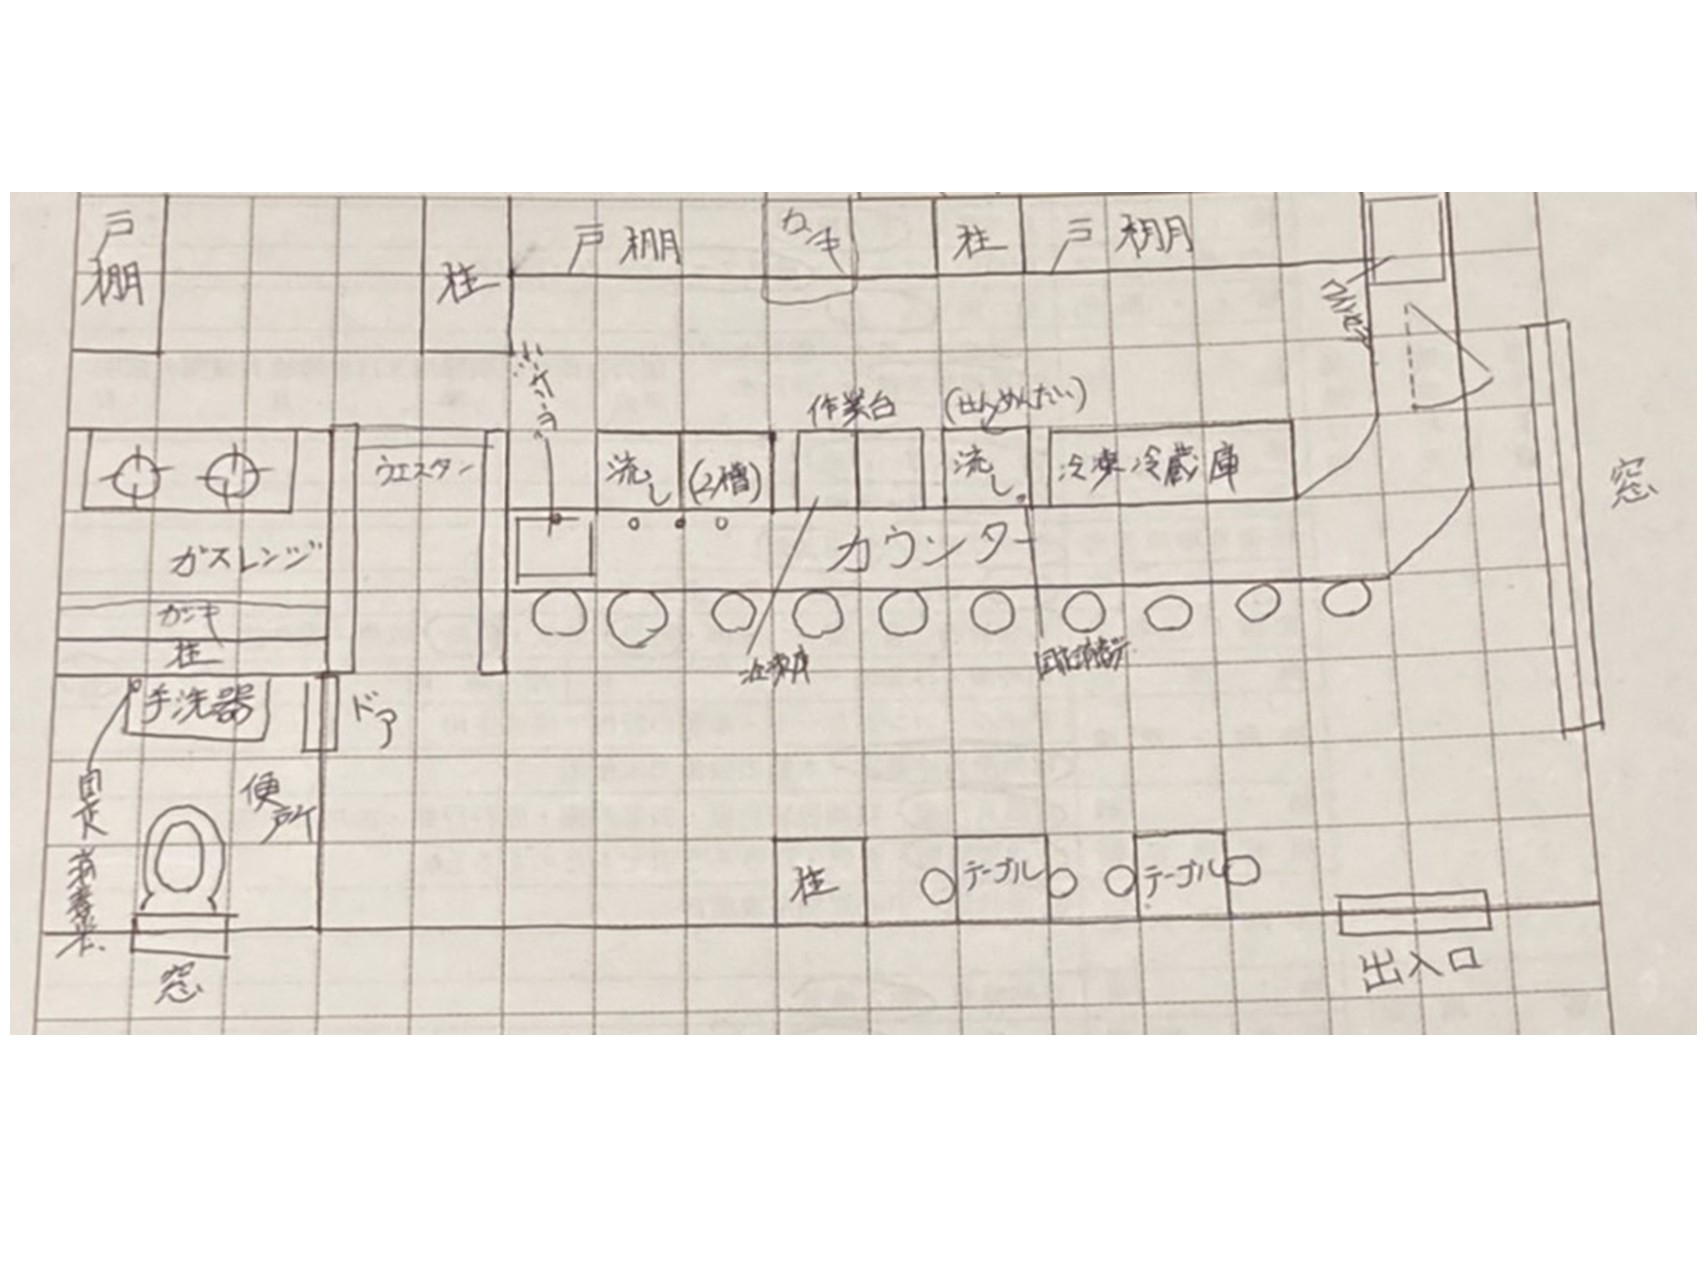 戸棚
柱
戸棚
カンキ
柱
戸棚
作業台
(せんめんだい)
ウエスタン
流し
(2槽)
流し
冷凍冷蔵庫
窓
ガスレンジ
カウンター
カンキ
柱
冷凍庫
手洗器
ドア
便所
固定
柱
テーブル
テーブル
窓
出入口